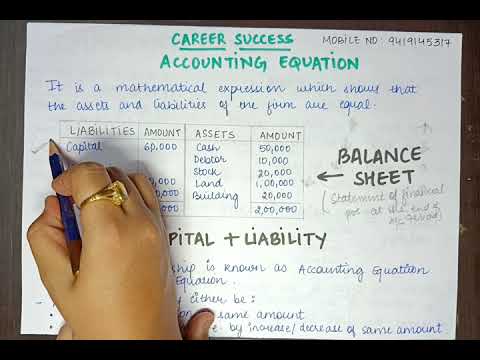 CAREER SUCCESS
MOBILE NO: 9419145317
ACCOUNTING EQUATION
It is a mathematical expression which shows that
the assets and liabilities of the firm are equal.
LIABILITIES AMOUNT ASSETS AMOUNT
Capital 60,000 Cash 50,000
Debtor 10,000
Stock 20,000
Land 1,00,000
Building 20,000
2,00,000
← BALANCE
SHEET
(Statement of financial
pos. at the end of
PITAL + LIABILITY
ship is known as Accounting Equation
Equation.
either be:
same amount
by increase/decrease of same amount